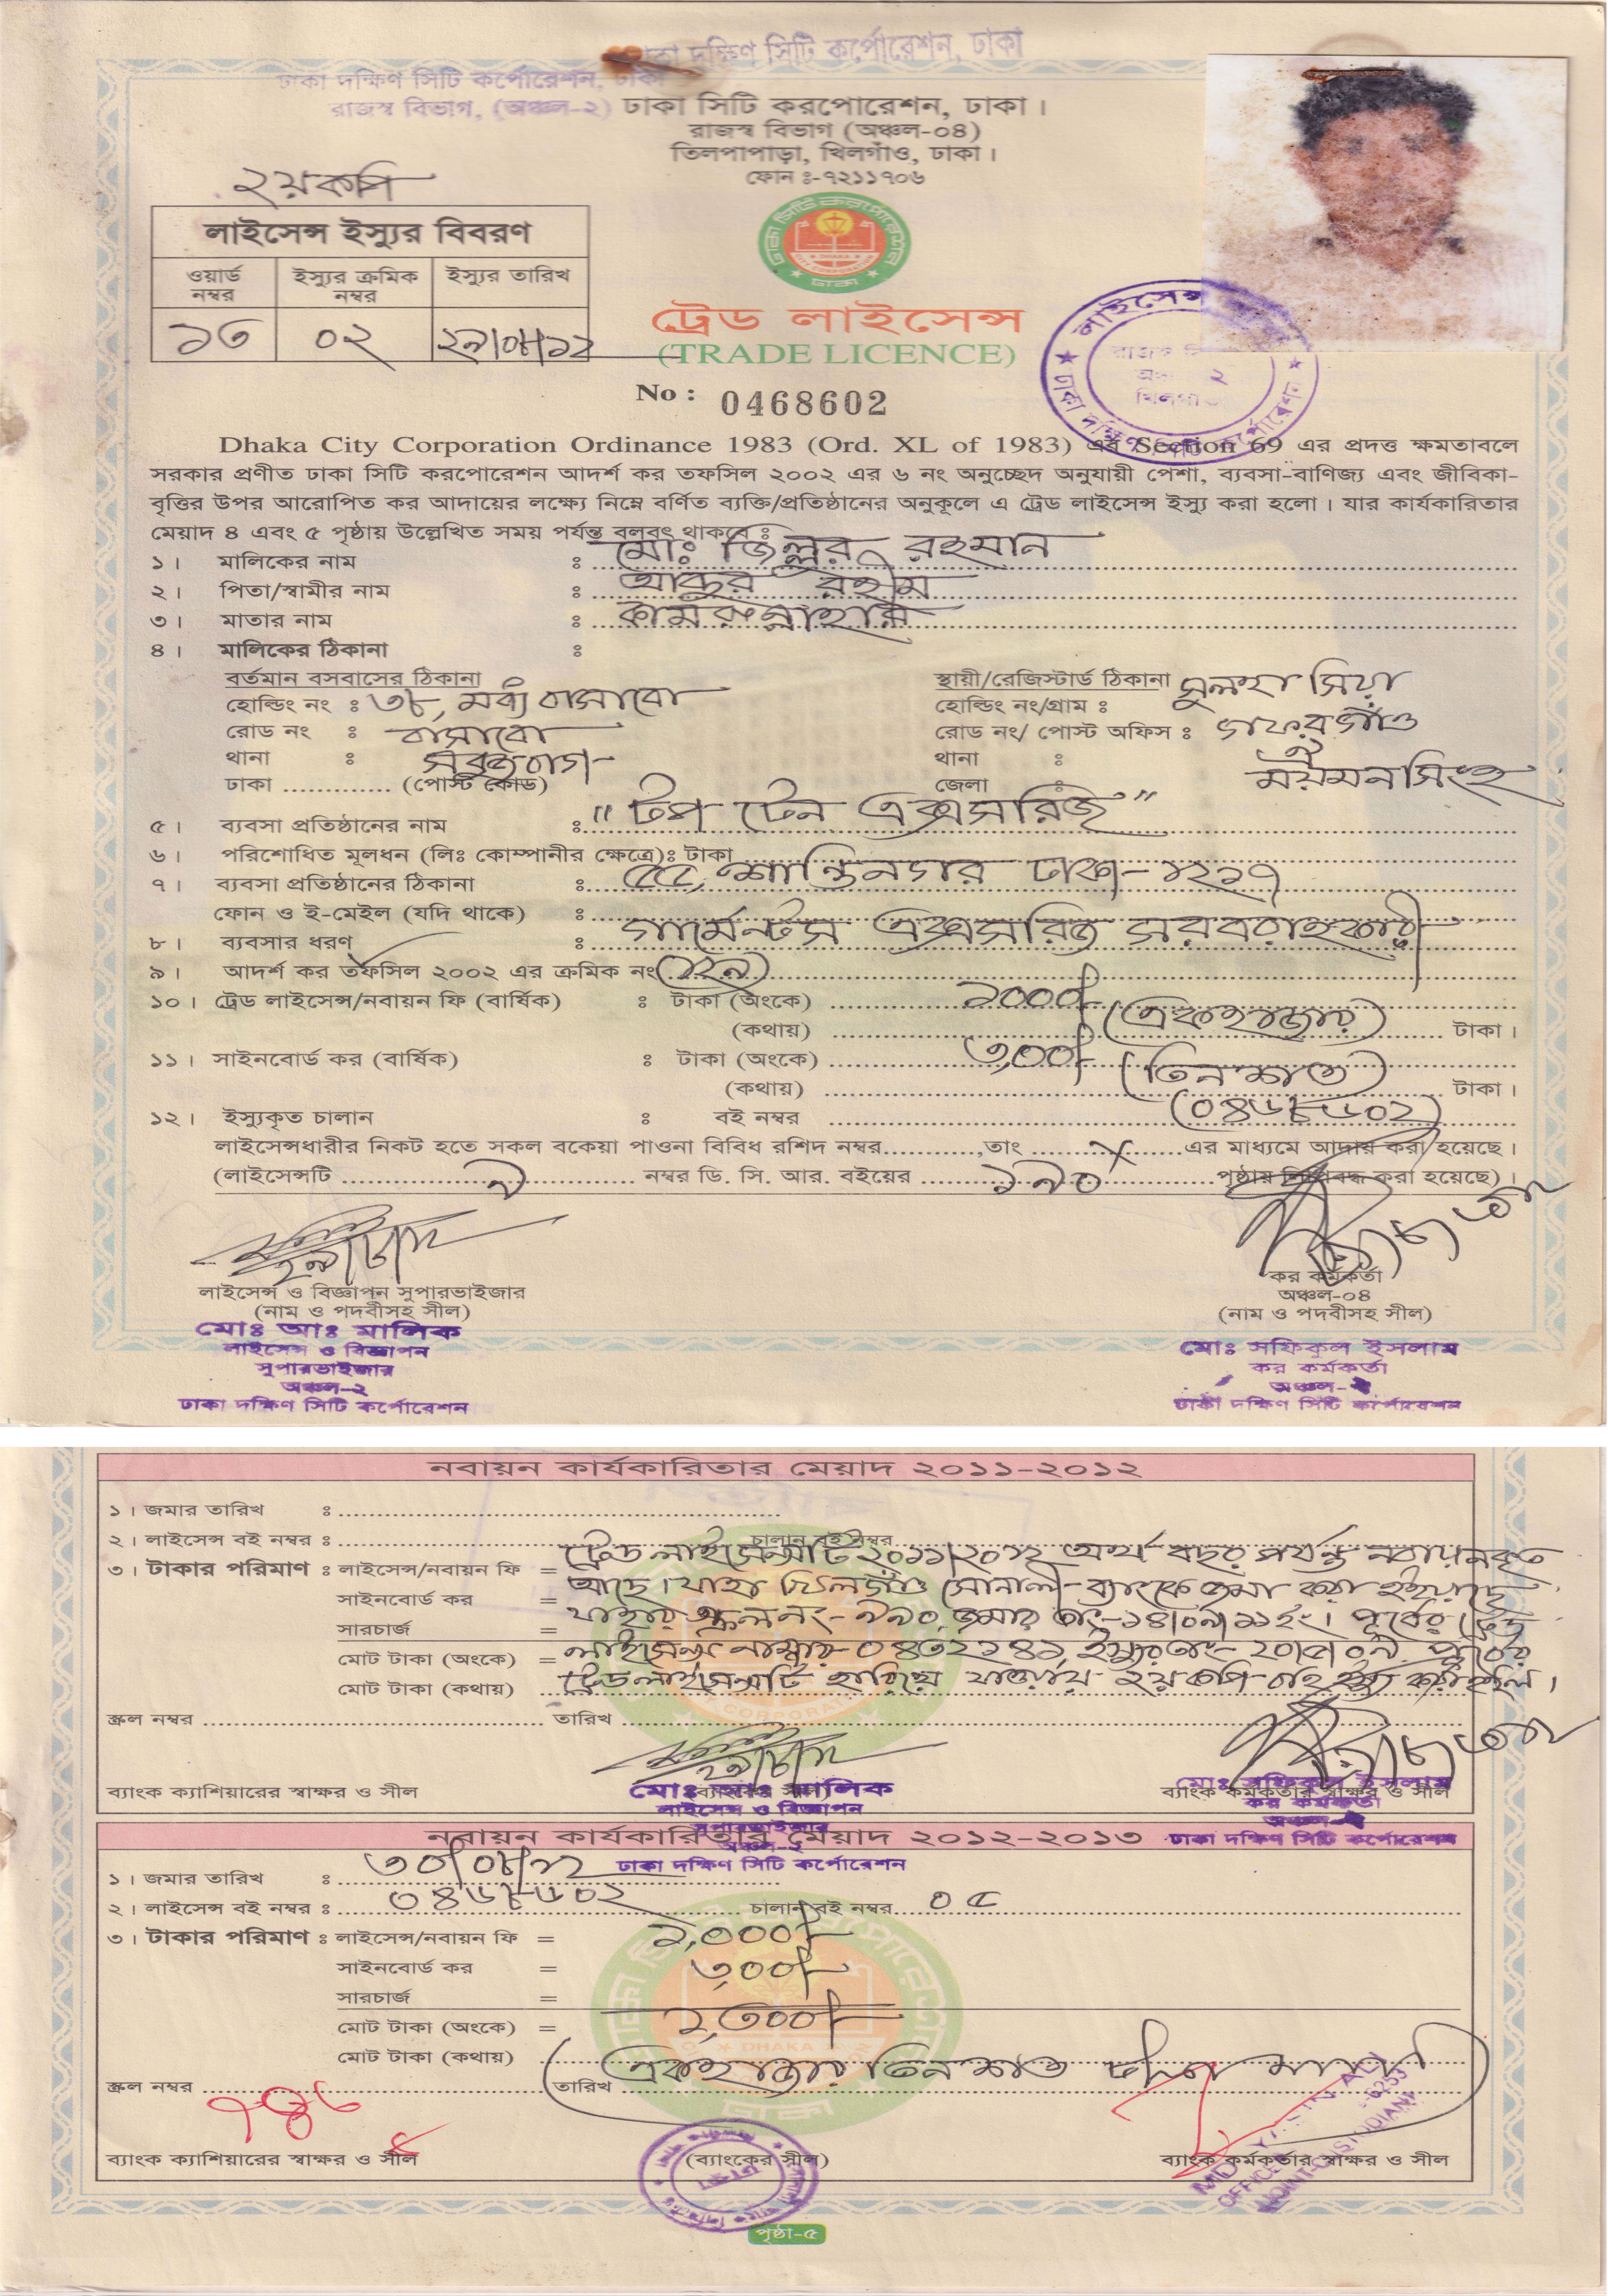 ঢাকা দক্ষিণ সিটি কর্পোরেশন, ঢাকা
ঢাকা দক্ষিণ সিটি কর্পোরেশন, ঢাকা
রাজস্ব বিভাগ, (অঞ্চল-২) ঢাকা সিটি করপোরেশন, ঢাকা।
রাজস্ব বিভাগ (অঞ্চল-০৪)
তিলপাপাড়া, খিলগাঁও, ঢাকা।
ফোন ঃ-৭২১১৭০৬
২য় কপি
লাইসেন্স ইস্যুর বিবরণ
ওয়ার্ড নম্বর ইস্যুর ক্রমিক নম্বর ইস্যুর তারিখ
১৩ ০২ ২৯/০৮/১২
ট্রেড লাইসেন্স
(TRADE LICENCE)
No : 0468602
Dhaka City Corporation Ordinance 1983 (Ord. XL of 1983) এর Section 69 এর প্রদত্ত ক্ষমতাবলে
সরকার প্রণীত ঢাকা সিটি করপোরেশন আদর্শ কর তফসিল ২০০২ এর ৬ নং অনুচ্ছেদ অনুযায়ী পেশা, ব্যবসা-বাণিজ্য এবং জীবিকা-
বৃত্তির উপর আরোপিত কর আদায়ের লক্ষ্যে নিম্নে বর্ণিত ব্যক্তি/প্রতিষ্ঠানের অনুকূলে এ ট্রেড লাইসেন্স ইস্যু করা হলো। যার কার্যকারিতার
মেয়াদ ৪ এবং ৫ পৃষ্ঠায় উল্লেখিত সময় পর্যন্ত বলবৎ থাকবে ঃ
১। মালিকের নাম ঃ মোঃ জিল্লুর রহমান
২। পিতা/স্বামীর নাম ঃ আব্দুর রহীম
৩। মাতার নাম ঃ কামরুন্নাহার
৪। মালিকের ঠিকানা ঃ
বর্তমান বসবাসের ঠিকানা স্থায়ী/রেজিস্টার্ড ঠিকানা
হোল্ডিং নং ঃ ৩৮, মধ্য বাসাবো হোল্ডিং নং/গ্রাম ঃ
রোড নং ঃ বাসাবো রোড নং/ পোস্ট অফিস ঃ গফরগাঁও
থানা ঃ সবুজবাগ থানা ঃ
ঢাকা ............. (পোস্ট কোড) জেলা ঃ ময়মনসিংহ
৫। ব্যবসা প্রতিষ্ঠানের নাম ঃ "টপ টেন এক্সেসরিজ"
৬। পরিশোধিত মূলধন (লিঃ কোম্পানীর ক্ষেত্রে)ঃ টাকা
৭। ব্যবসা প্রতিষ্ঠানের ঠিকানা ঃ ৫৫, শান্তিনগর ঢাকা-১২১৭
ফোন ও ই-মেইল (যদি থাকে) ঃ
৮। ব্যবসার ধরণ ঃ গার্মেন্টস এক্সেসরিজ সরবরাহকারী
৯। আদর্শ কর তফসিল ২০০২ এর ক্রমিক নং (১২৯)
১০। ট্রেড লাইসেন্স/নবায়ন ফি (বার্ষিক) ঃ টাকা (অংকে) ১০০০/-
(কথায়) (একহাজার) টাকা।
১১। সাইনবোর্ড কর (বার্ষিক) ঃ টাকা (অংকে) ৩০০/-
(কথায়) (তিনশত) টাকা।
১২। ইস্যুকৃত চালান ঃ বই নম্বর (০৪৬৮৬০২)
লাইসেন্সধারীর নিকট হতে সকল বকেয়া পাওনা বিবিধ রশিদ নম্বর............,তাং ........X.......এর মাধ্যমে আদায় করা হয়েছে।
(লাইসেন্সটি ৯ নম্বর ডি. সি. আর. বইয়ের ১৯০ পৃষ্ঠায় লিপিবদ্ধ করা হয়েছে)।
লাইসেন্স ও বিজ্ঞাপন সুপারভাইজার কর কর্মকর্তা
অঞ্চল-০৪
(নাম ও পদবীসহ সীল) (নাম ও পদবীসহ সীল)
মোঃ আঃ মালিক মোঃ সফিকুল ইসলাম
লাইসেন্স ও বিজ্ঞাপন কর কর্মকর্তা
সুপারভাইজার
অঞ্চল-২ অঞ্চল-২
ঢাকা দক্ষিণ সিটি কর্পোরেশন ঢাকা দক্ষিণ সিটি কর্পোরেশন
নবায়ন কার্যকারিতার মেয়াদ ২০১১-২০১২
১। জমার তারিখ ঃ
২। লাইসেন্স বই নম্বর ঃ চালান বই নম্বর
ট্রেড লাইসেন্সটি ২০১১/২০১২ অর্থ বছর পর্যন্ত নবায়নকৃত
৩। টাকার পরিমাণ ঃ লাইসেন্স/নবায়ন ফি =
আছে। যাহা খিলগাঁও সোনালী ব্যাংকে জমা করা হইয়াছে
সাইনবোর্ড কর =
যাহার স্ক্রল নং- ৯৯০, জমার তাং-১৪/০৯/১১ইং। পূর্বের ট্রেড
সারচার্জ =
মোট টাকা (অংকে) = লাইসেন্স নাম্বার- ০৪৩২১৪১, ইস্যুর তাং- ২০/৫/০৯. পূর্বের
মোট টাকা (কথায়) ট্রেড লাইসেন্সটি হারিয়ে যাওয়ায় ২য় কপি বহি ইস্যু করা হইল।
স্ক্রল নম্বর তারিখ
ব্যাংক ক্যাশিয়ারের স্বাক্ষর ও সীল ব্যাংক কর্মকর্তার স্বাক্ষর ও সীল
মোঃ আঃ মালিক মোঃ সফিকুল ইসলাম
লাইসেন্স ও বিজ্ঞাপন কর কর্মকর্তা
সুপারভাইজার
অঞ্চল-২ অঞ্চল-২
ঢাকা দক্ষিণ সিটি কর্পোরেশন ঢাকা দক্ষিণ সিটি কর্পোরেশন
নবায়ন কার্যকারিতার মেয়াদ ২০১২-২০১৩
১। জমার তারিখ ঃ ৩০/০৮/১২
২। লাইসেন্স বই নম্বর ঃ ০৪৬৮৬০২ চালান বই নম্বর ০৫
৩। টাকার পরিমাণ ঃ লাইসেন্স/নবায়ন ফি = ১,০০০/-
সাইনবোর্ড কর = ৩০০/-
সারচার্জ =
মোট টাকা (অংকে) = ১,৩০০/-
মোট টাকা (কথায়) (একহাজার তিনশত টাকা মাত্র)
স্ক্রল নম্বর ৭৪৬ তারিখ
ব্যাংক ক্যাশিয়ারের স্বাক্ষর ও সীল (ব্যাংকের সীল) ব্যাংক কর্মকর্তার স্বাক্ষর ও সীল
পৃষ্ঠা-৫